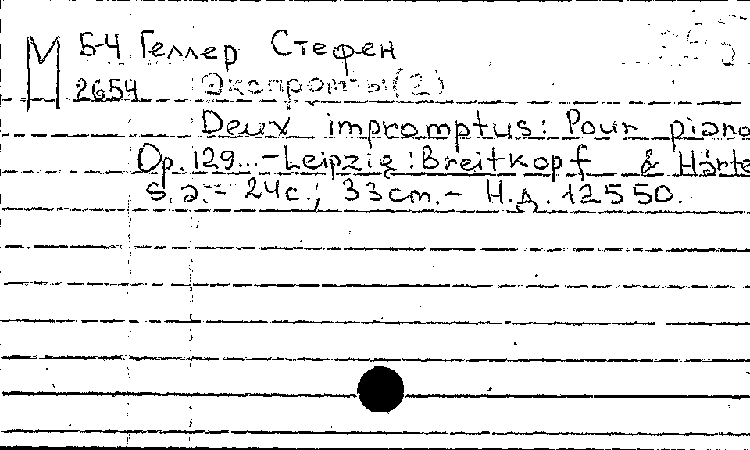 М Б-4 Геллер Стефен
2654 Экспромты (2)
Deux impromptus: Pour piano
Op. 129... - Leipzig: Breitkopf & Härte
S. a. - 24c.; 33cm. - Н.д. 12550.